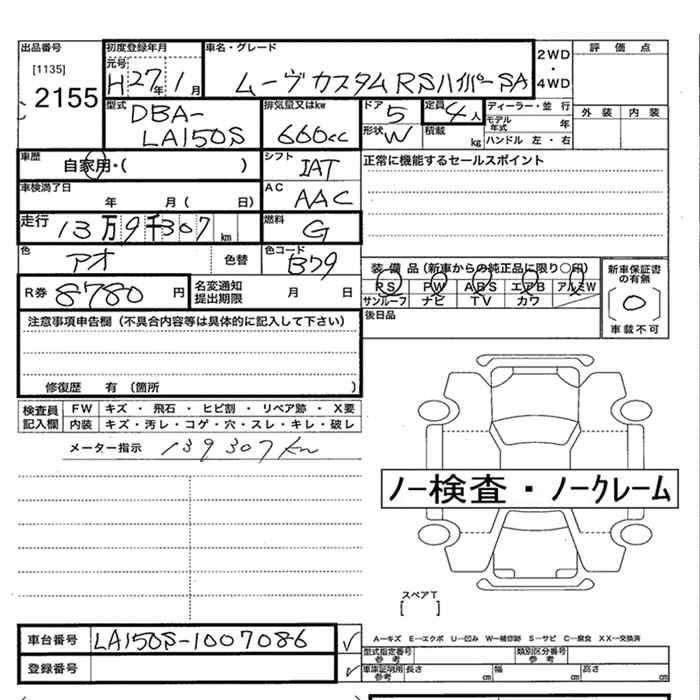 出品番号
[1135]
2155
初度登録年月
元号
H27年1月
車名・グレード
ムーヴカスタムRSハイパーSA
2WD
・
4WD
評価点
外装 内装
型式
DBA-
LA150S
排気量又はkw
660cc
ドア 5
形状 W
定員 4人
積載 kg
ディーラー・並行
モデル年式 年
ハンドル 左・右
車歴
自家用・( )
シフト
IAT
正常に機能するセールスポイント
車検満了日
年 月( 日)
AC
AAC
走行
13万9千307km
燃料
G
色
アオ
色替
色コード
B79
装備品(新車からの純正品に限り○印)
PS PW ABS エアB アルミW
サンルーフ ナビ TV カワ
新車保証書
の有無
[○]
車載不可
R券 8780円
名変通知
提出期限
月 日
後日品
注意事項申告欄(不具合内容等は具体的に記入して下さい)
修復歴 有(箇所 )
検査員
記入欄
FW キズ・飛石・ヒビ割・リペア跡・X要
内装 キズ・汚レ・コゲ・穴・スレ・キレ・破レ
メーター指示 139307km
ノー検査・ノークレーム
スペアT
[ ]
車台番号 LA150S-1007086
登録番号
A―キズ E―エクボ U―凹み W―補修跡 S―サビ C―腐食 XX―交換済
型式指定番号
参考
類別区分番号
参考
車庫証明用
参考
長さ cm 幅 cm 高さ cm